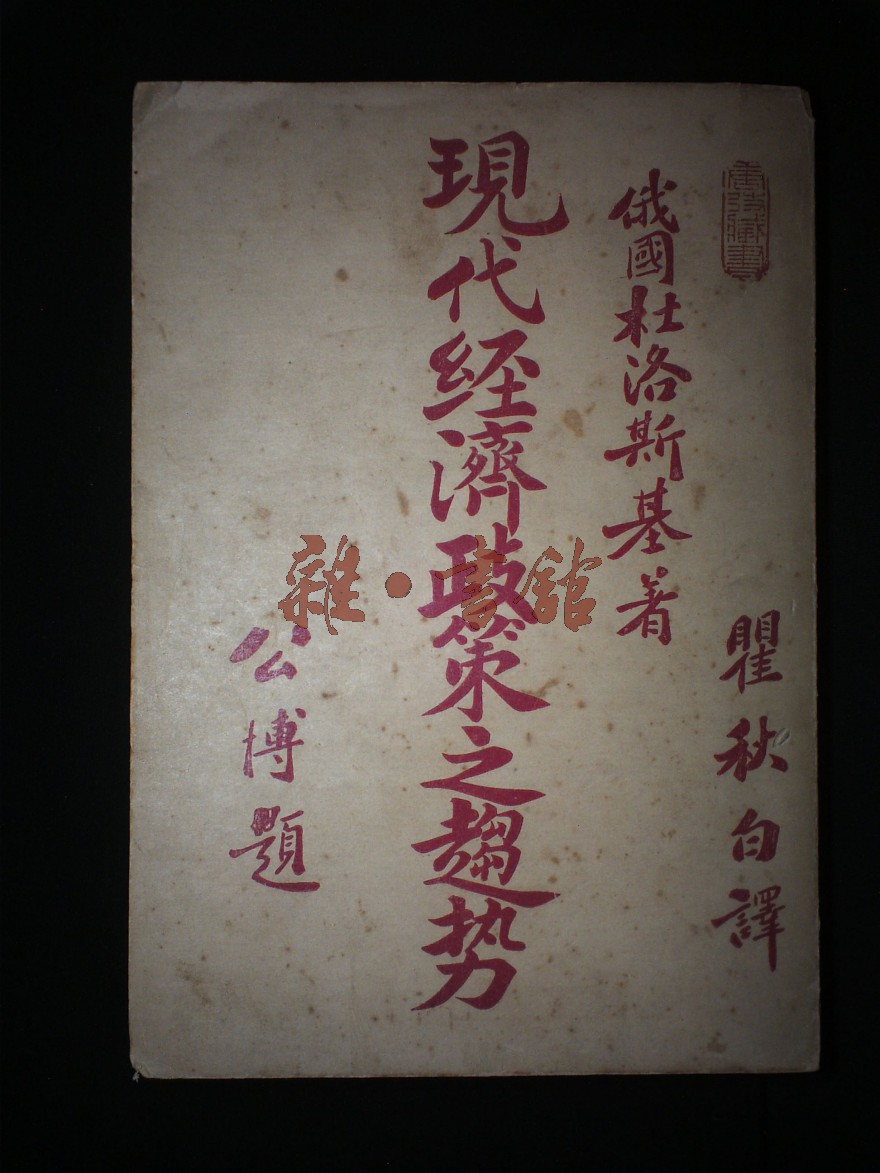 唐弢藏書
瞿秋白譯
俄國杜洛斯基著
現代経濟政策之趨势
公博題
雜·書館